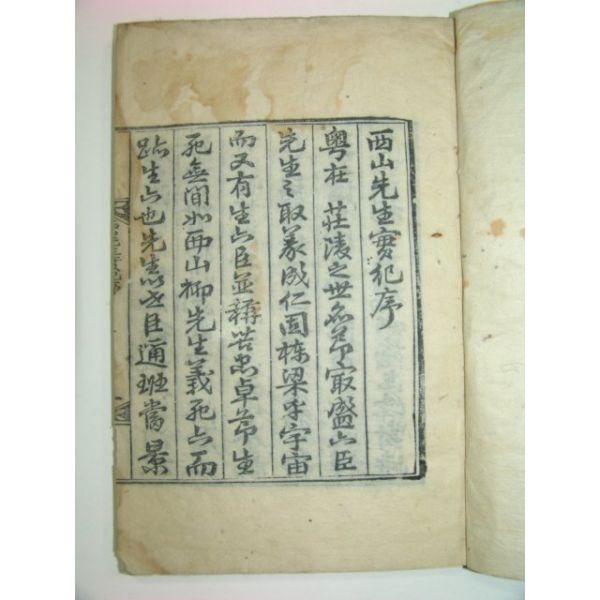 西山先生實紀序
粤在 莊陵之世名節最盛六臣
先生之取義成仁固棟梁乎宇宙
而又有生六臣並稱苦忠卓節生
死無間如西山柳先生義死六而
跡生六也先生以世臣通班當景